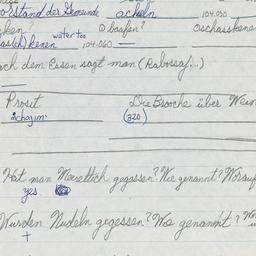 orstand der Gemeinde acheln 104.050
ken water too ⊙ baafen? ⊙schasskene
as(ch)kenen 104.060
ach dem Essen sagt man (Rabossaj...)
Prosit Die Broche über Wein
lchajim (320)
Hat man Meerettich gegessen? Wie genannt? Worauf
yes
Wurden Nudeln gegessen? Wie genannt?
+